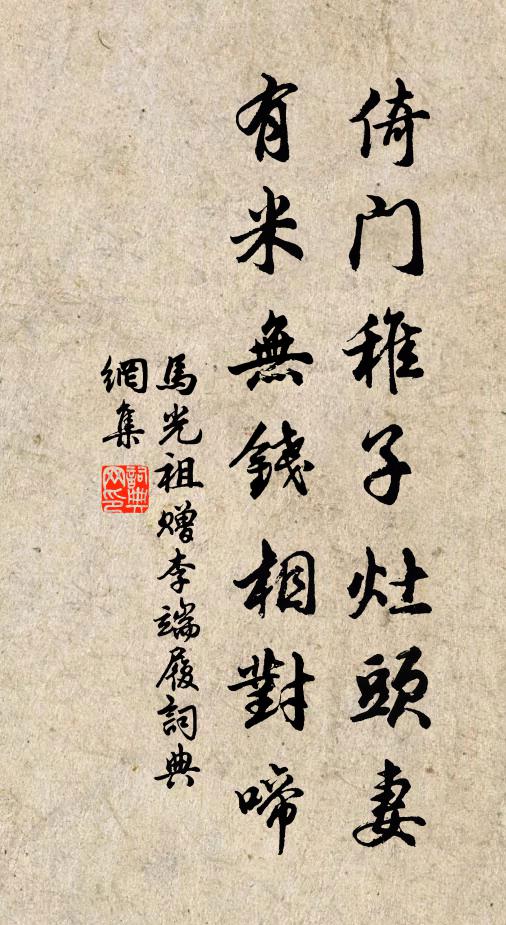 倚門稚子灶頭妻
有米無錢相對啼
馬光祖贈李端履詞典
網集
詞典網印